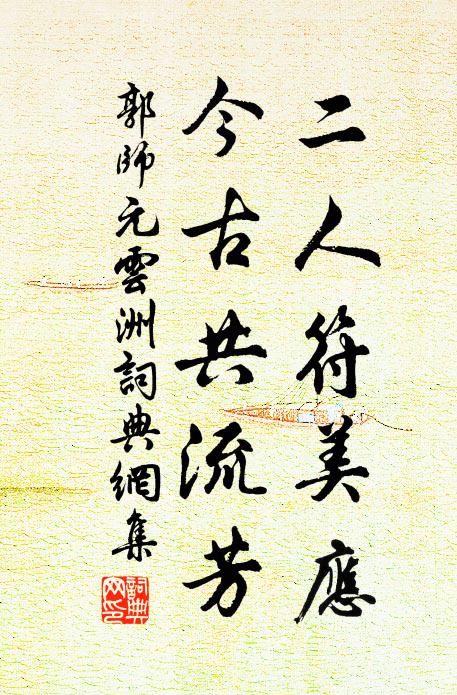 二人符美應
今古共流芳
郭師元雲洲詞典網集
詞典
网印